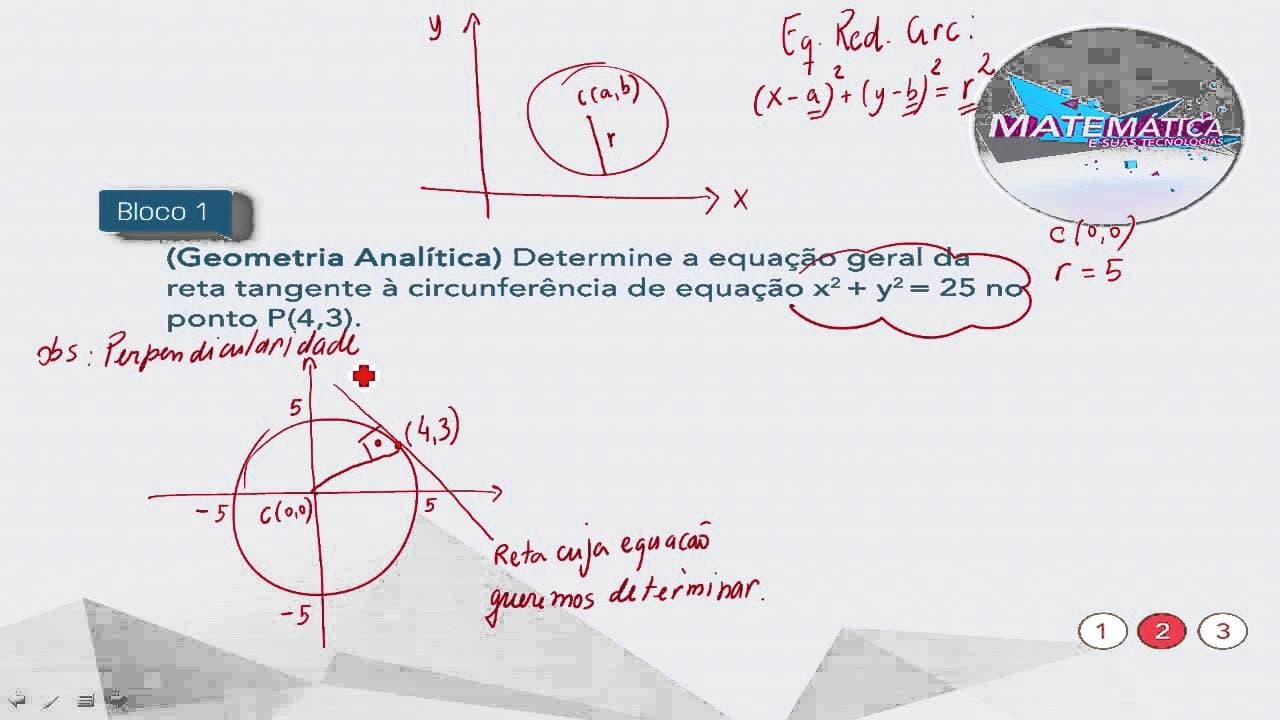 y
C(a,b)
r
x
Eq. Red. Circ:
(x-a)²+(y-b)²=r²
MATEMÁTICA
E SUAS TECNOLOGIAS
C(0,0)
r = 5
Bloco 1
(Geometria Analítica) Determine a equação geral da
reta tangente à circunferência de equação x² + y² = 25 no
ponto P(4,3).
obs: Perpendicularidade
5
(4,3)
-5
C(0,0)
5
-5
Reta cuja equação
queremos determinar.
1 2 3